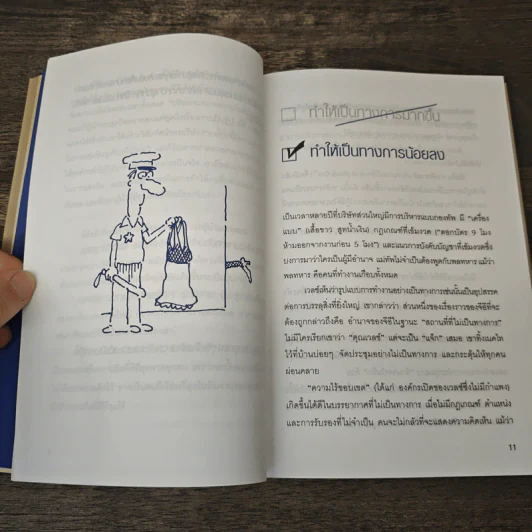 ทำให้เป็นทางการมากขึ้น
ทำให้เป็นทางการน้อยลง
เป็นเวลาหลายปีที่บริษัทส่วนใหญ่มีการบริหารแบบกองทัพ มี "เครื่อง
แบบ" (เสื้อขาว สูทน้ำเงิน) กฎเกณฑ์ที่เข้มงวด ("ตอกบัตร 9 โมง
ห้ามออกจากงานก่อน 5 โมง") และแนวการบังคับบัญชาที่เข้มงวดซึ่ง
บงการมาว่าใครเป็นผู้มีอำนาจ แม่ทัพไม่จำเป็นต้องพูดกับพลทหาร แม้ว่า
พลทหาร คือคนที่ทำงานเกือบทั้งหมด
เวลช์เห็นว่ารูปแบบการทำงานอย่างเป็นทางการเช่นนั้นเป็นอุปสรรค
ต่อการบรรลุสิ่งที่ยิ่งใหญ่ เขากล่าวว่า ส่วนหนึ่งของเรื่องราวของจีอีที่จะ
ต้องถูกกล่าวถึงคือ อำนาจของจีอีในฐานะ "สถานที่ที่ไม่เป็นทางการ"
ไม่มีใครเรียกเขาว่า "คุณเวลช์" แต่จะเป็น "แจ็ก" เสมอ เขาทิ้งเนคไท
ไว้ที่บ้านบ่อยๆ จัดประชุมอย่างไม่เป็นทางการ และกระตุ้นให้ทุกคน
ผ่อนคลาย
"ความไร้ขอบเขต" (ได้แก่ องค์กรเปิดของเวลช์ซึ่งไม่มีกำแพง)
เกิดขึ้นได้ดีในบรรยากาศที่ไม่เป็นทางการ เมื่อไม่มีกฎเกณฑ์ ตำแหน่ง
และการรับรองที่ไม่จำเป็น คนจะไม่กลัวที่จะแสดงความคิดเห็น แม้ว่า
11